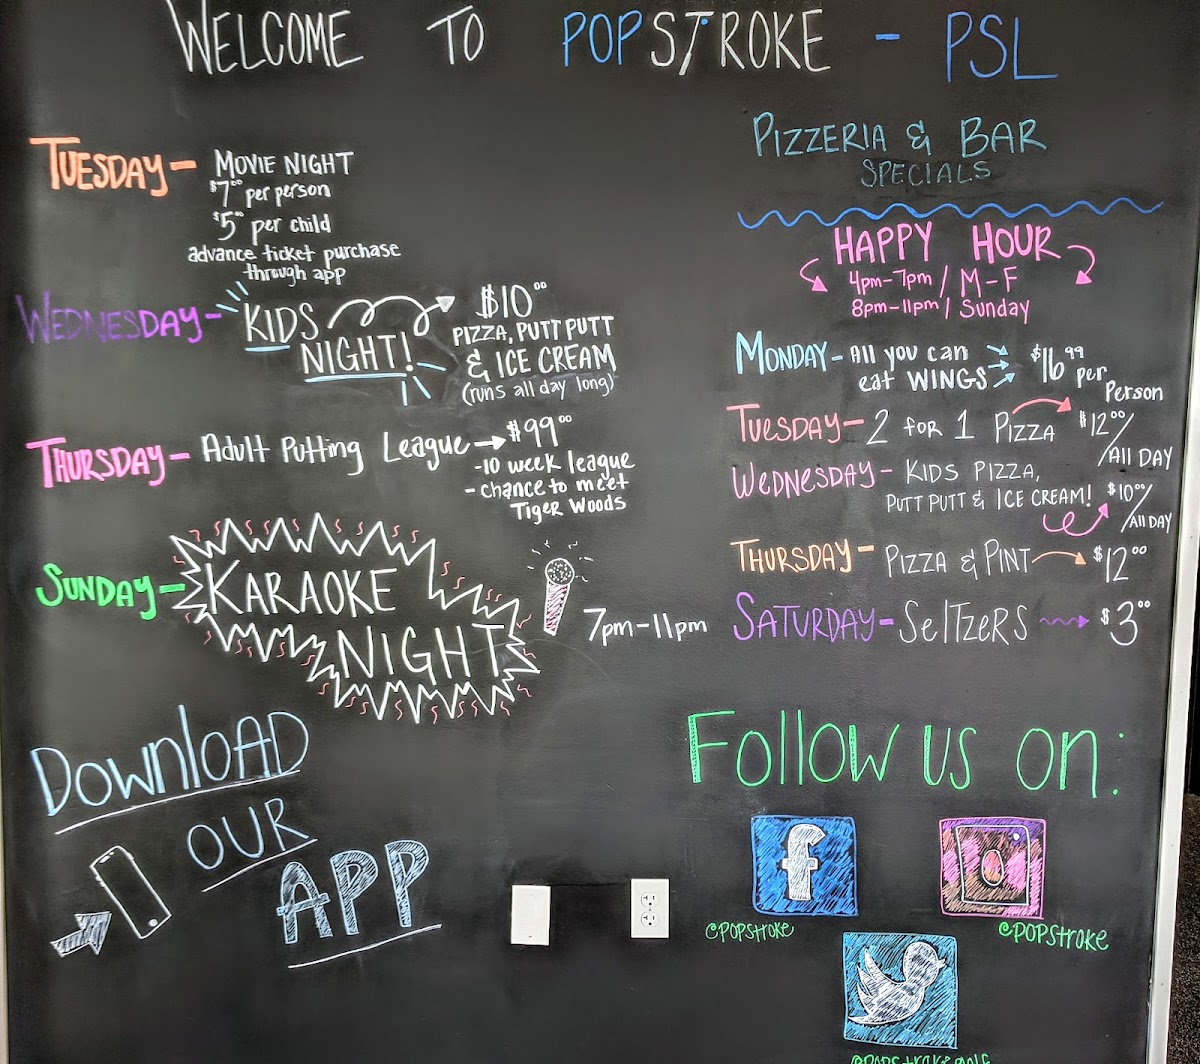 WELCOME TO POPSTROKE - PSL
TUESDAY - MOVIE NIGHT
$7.00 per person
$5.00 per child
advance ticket purchase
through app
WEDNESDAY - KIDS
NIGHT!
$10.00
PIZZA, PUTT PUTT
& ICE CREAM
(runs all day long)
THURSDAY - Adult Putting League → $99.00
- 10 week league
- chance to meet
Tiger Woods
SUNDAY - KARAOKE
NIGHT
7pm-11pm
DOWNLOAD
OUR
APP
PIZZERIA & BAR
SPECIALS
HAPPY HOUR
4pm-7pm / M-F
8pm-11pm / Sunday
MONDAY - All you can
eat WINGS
$16.99 per
Person
TUESDAY - 2 for 1 Pizza $12.00/
All DAY
WEDNESDAY - KIDS PIZZA,
PUTT PUTT & ICE CREAM! $10.00/
All DAY
THURSDAY - PIZZA & PINT → $12.00
SATURDAY - SelTzeRS → $3.00
Follow us on:
f
@POPStroke
@POPStroke
@POPStrokegolf